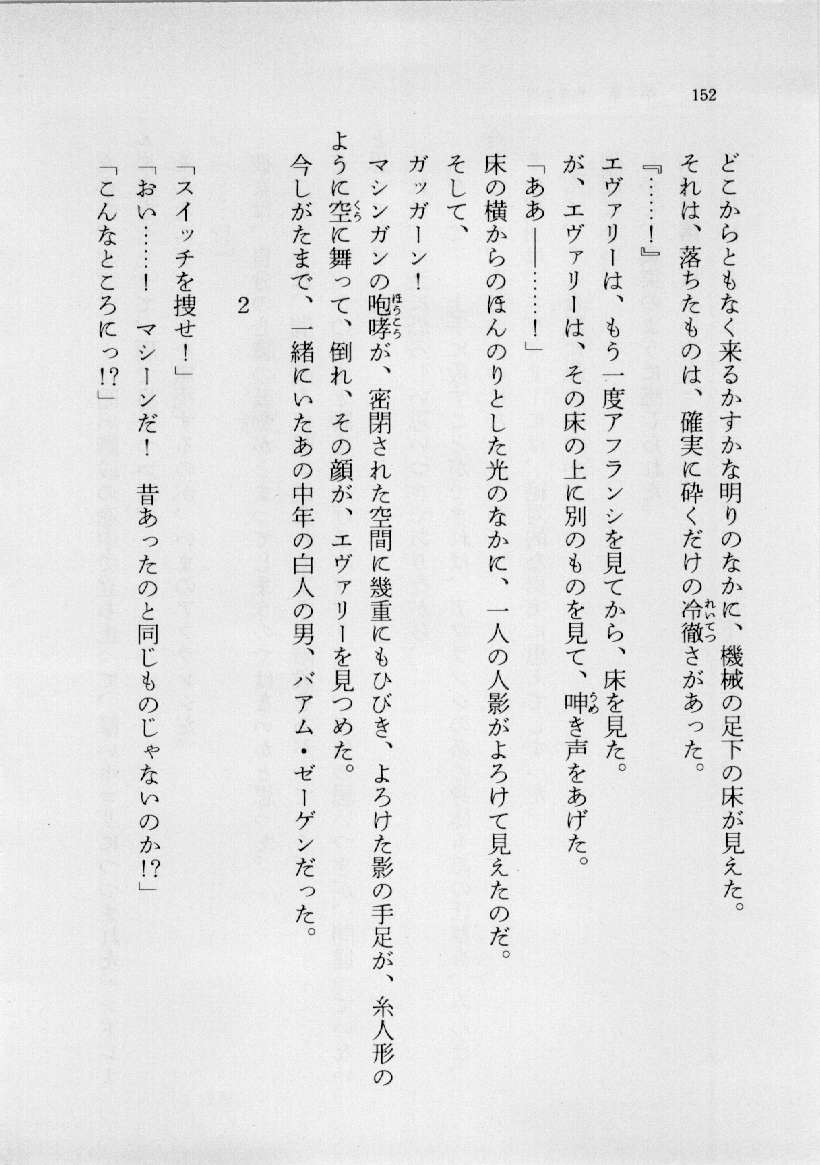 152
どこからともなく来るかすかな明りのなかに、機械の足下の床が見えた。
それは、落ちたものは、確実に砕くだけの冷徹さがあった。
『……！』
エヴァリーは、もう一度アフランシを見てから、床を見た。
が、エヴァリーは、その床の上に別のものを見て、呻き声をあげた。
「ああ――……！」
床の横からのほんのりとした光のなかに、一人の人影がよろけて見えたのだ。
そして、
ガッガーン！
マシンガンの咆哮が、密閉された空間に幾重にもひびき、よろけた影の手足が、糸人形の
ように空に舞って、倒れ、その顔が、エヴァリーを見つめた。
今しがたまで、一緒にいたあの中年の白人の男、バアム・ゼーゲンだった。
2
「スイッチを捜せ！」
「おい……！　マシーンだ！　昔あったのと同じものじゃないのか!?」
「こんなところにっ!?」